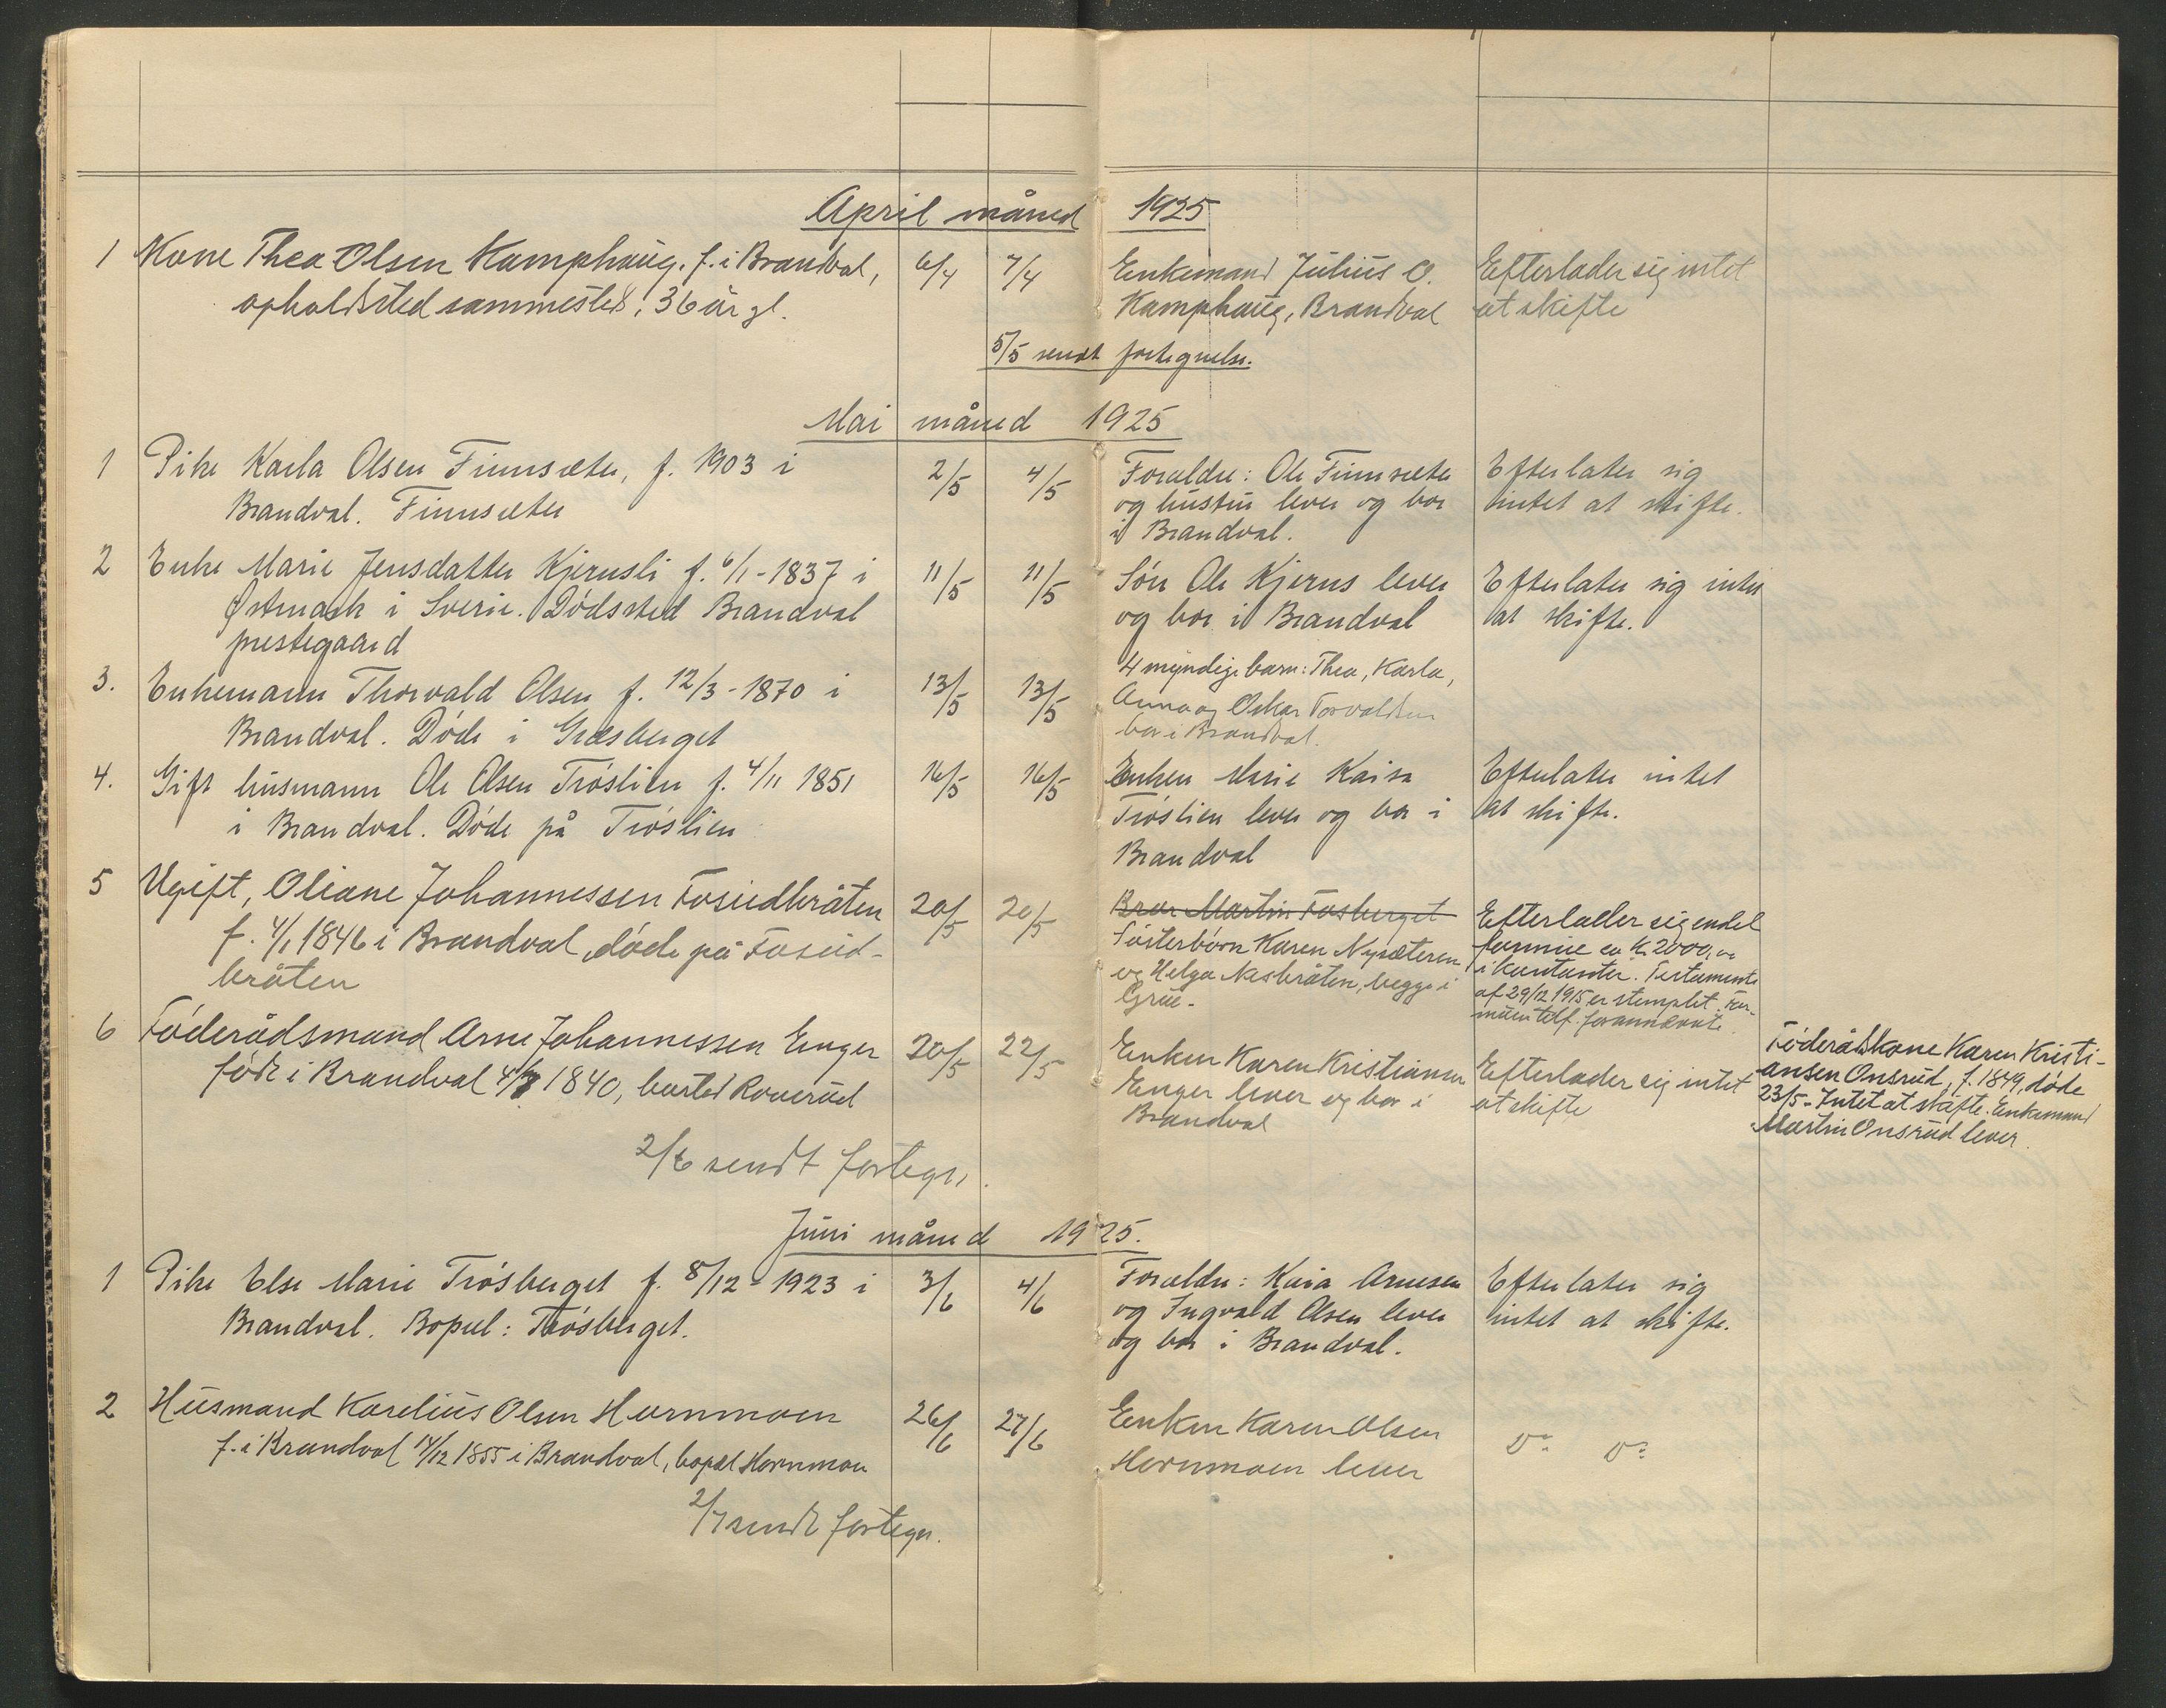 April måned 1925
1 Kone Thea Olsen Kamphaug. f. i Brandval, 6/4 7/4 Enkemand Julius O. Efterlader sig intet
opholdsted sammesteds, 36 år gl. Kamphaug, Brandval at skifte
5/5 sendt fortegnelse.
Mai måned 1925
1 Pike Karla Olsen Finnsæter, f. 1903 i 2/5 4/5 Forældre: Ole Finnsæter Efterlater sig
Brandval. Finnsæter og hustru lever og bor intet at skifte.
i Brandval.
2 Enke Marie Jensdatter Kjernsli f. 6/1 - 1837 i 11/5 11/5 Søn Ole Kjerns lever Efterlater sig intet
Østmark i Sverie. Dødssted Brandval og bor i Brandval at skifte.
prestegaard
3. Enkemann Thorvald Olsen f. 12/3 - 1870 i 13/5 13/5 4 myndige barn: Thea, Karla,
Brandval. Døde i Græsberget Anna og Oskar Torvaldsen
bor i Brandval.
4. Gift husmann Ole Olsen Trøslien f. 4/11 1851 16/5 16/5 Enken Marie Kaisa Efterlater intet
i Brandval. Døde på Trøslien Trøslien lever og bor i at skifte.
Brandval
5 Ugift, Oliane Johannessen Fosiedbråten 20/5 20/5 Bror Martin Fosberget Efterlader sig endel
f. 4/1 1846 i Brandval, døde på Søsterbørn Karen Nysæteren formue ca k. 2000,00
bråten og Helga Næsbråten, begge i i kontanter. Testamente
Grue. af 29/12 1915 er stemplet.
telf. forannævnte.
6 Føderådsmand Arne Johannessen Enger 20/5 22/5 Enken Karen Kristiansen Efterlader sig intet Føderådskone Karen Kristi-
født i Brandval 1840, bosted Roverud Enger lever og bor i at skifte ansen Onsrud, f. 1849, døde
Brandval 23/5 - Intet at skifte. Enkemand
Martin Onsrud lever.
2/6 sendt fortegn.
Juni måned 1925.
1 Pike Else Marie Trøsberget f. 8/12 - 1923 i 3/6 4/6 Forældre: Kaia Arnesen Efterlater sig
Brandval. Bopæl: Trøsberget. og Ingvald Olsen lever intet at skifte.
og bor i Brandval.
2 Husmand Karelius Olsen Hornmoen 26/6 27/6 Enken Karen Olsen Do Do
f. i Brandval 14/12 1855 i Brandval, bopæl Hornmoen Hornmoen lever
2/7 sendt fortegn.